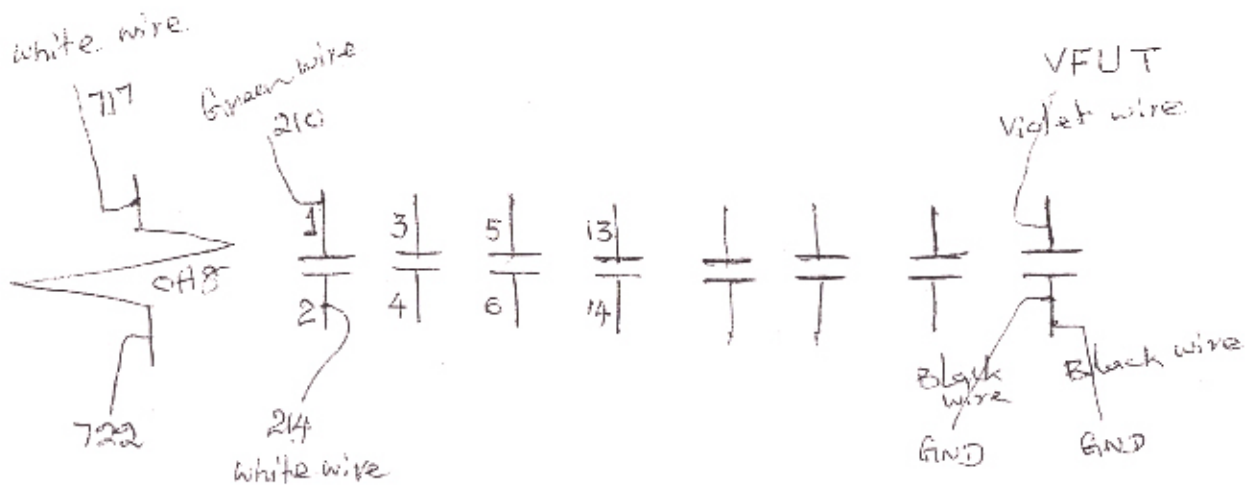 white wire
717
Green wire
210
VFUT
Violet wire
1
3
5
13
2
4
6
14
722
214
white wire
Black
wire
GND
Black wire
GND